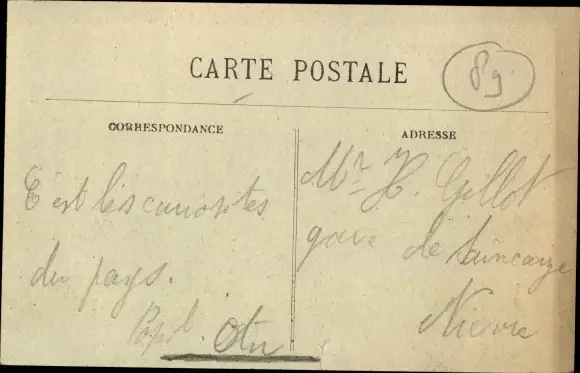 CARTE POSTALE
89
CORRESPONDANCE
C'est les curiosites
du pays.
ADRESSE
Mr H. Gillot
gare de Saincaize
Nievre